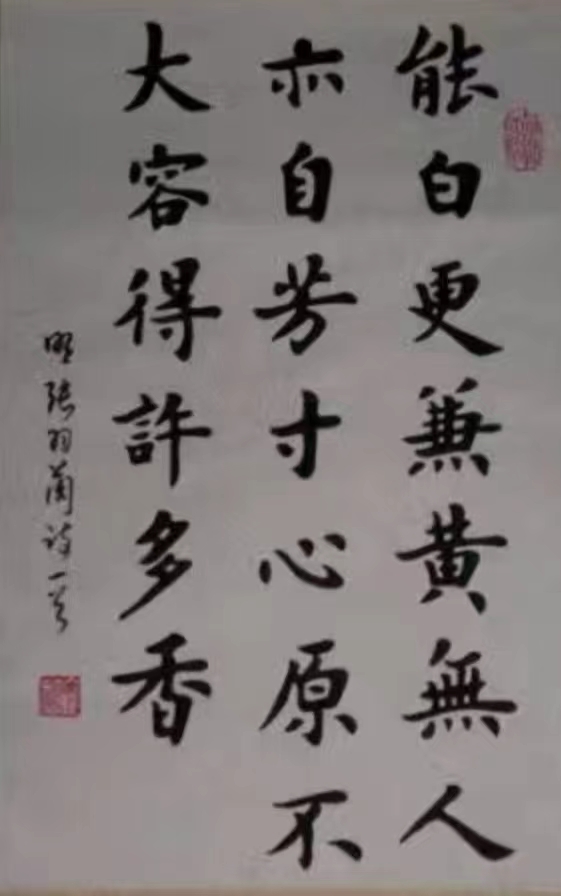 能白更兼黄無人
亦自芳寸心原不
大容得許多香
明張羽蘭詩一首